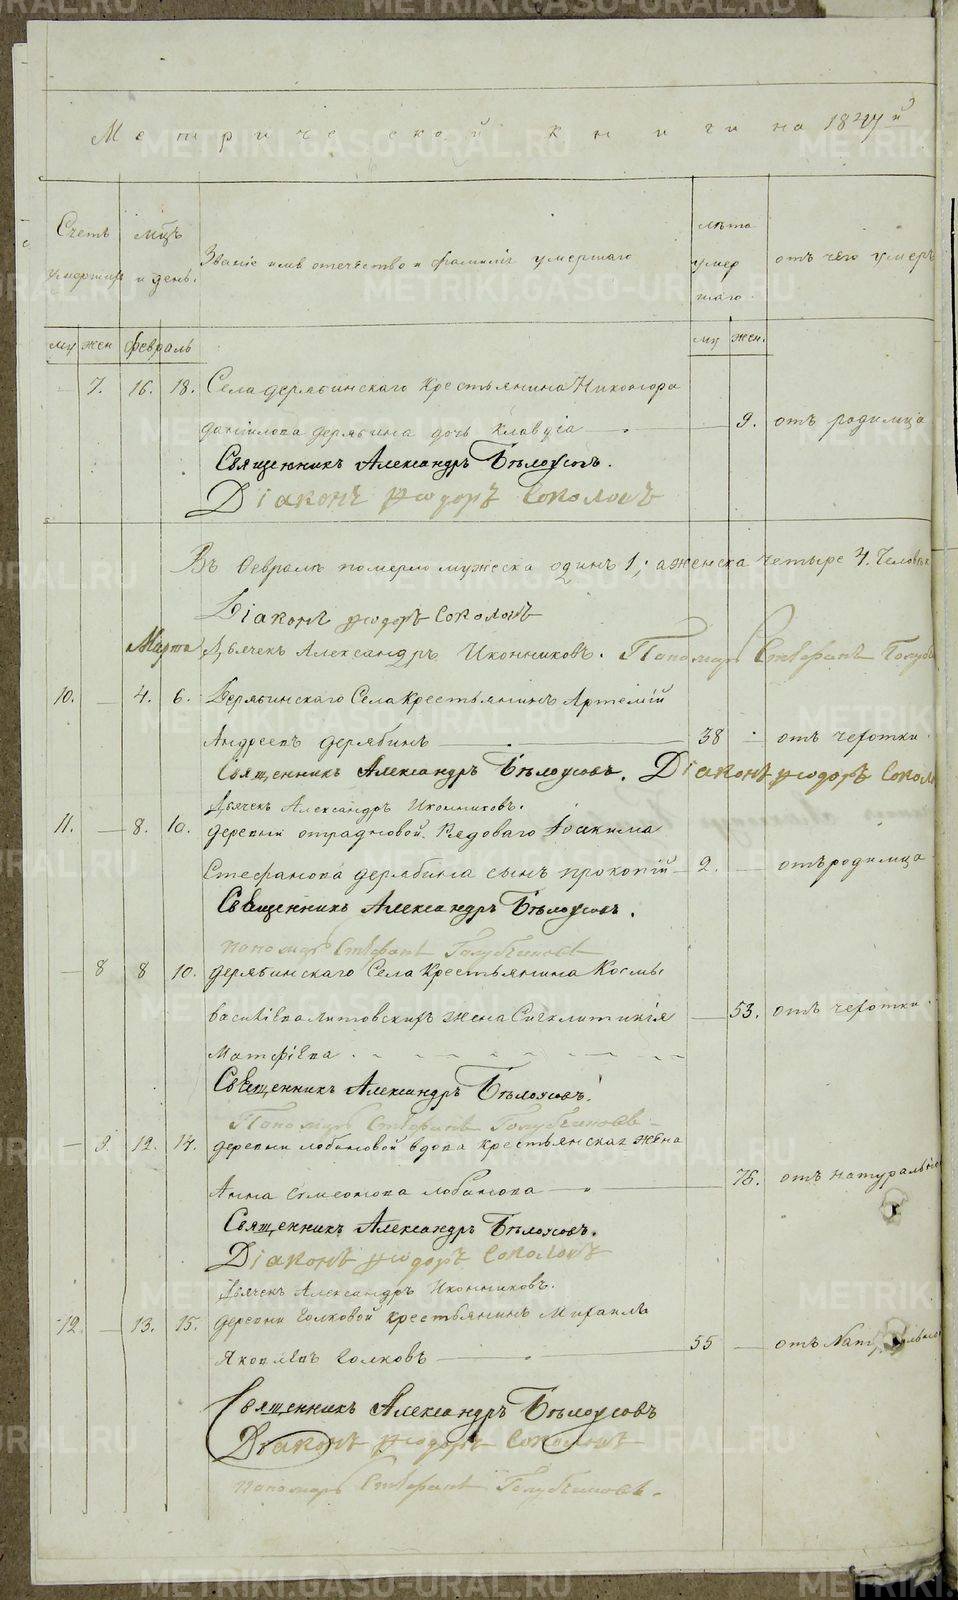 Метрической книги на 1847й
Счетъ умершихъ
мцъ и день.
Званіе имя отечество и фамилія умершаго
лѣта умер шаго.
отъ чего умеръ
му жен февраль му жен.
7. 16. 18. Села дерябинскаго крестьянина Никонора
даніилова дерябина дочь Клавдія — 9. отъ родимца
Священникъ Александръ Бѣлоусовъ.
Діаконъ Ѳеодоръ Соколовъ
Въ Февралѣ померло мужеска одинъ 1; а женска четыре 4. Человѣк
Діаконъ Ѳеодоръ Соколовъ
Марта Дьячекъ Александръ Иконниковъ. Пономарь Стефанъ
10. — 4. 6. Дерябинскаго Села крестьянинъ Артемій
Андреевъ дерябинъ — 38 отъ чехотки.
Священникъ Александръ Бѣлоусовъ. Діаконъ Ѳеодоръ Сокол
Дьячекъ Александръ Иконниковъ.
11. — 8. 10. деревни отрадновой Рядоваго Іоакима
Стефанова дерябина сынъ прокопій — 2. — отъ родимца
Священникъ Александръ Бѣлоусовъ.
пономарь Стефанъ Голубчиковъ
— 8 8 10. дерябинскаго Села Крестьянина Космы
василіева Литовскихъ жена Сигклитикія — 53. отъ чехотки.
Матфіева
Священникъ Александръ Бѣлоусовъ.
Пономарь Стефанъ Голубчиковъ
— 9. 12. 14. деревни лобановой вдова крестьянская жена
Анна симеонова лобанова — 76. отъ натуральной
Священникъ Александръ Бѣлоусовъ.
Діаконъ Ѳеодоръ Соколовъ
Дьячекъ Александръ Иконниковъ.
12. — 13. 15. деревни Волковой крестьянинъ Михаилъ
Яковлевъ Волковъ — 55 —
Священникъ Александръ Бѣлоусовъ
Діаконъ Ѳеодоръ Соколовъ
пономарь Стефанъ Голубчиковъ.
METRIKI.GASO-URAL.RU